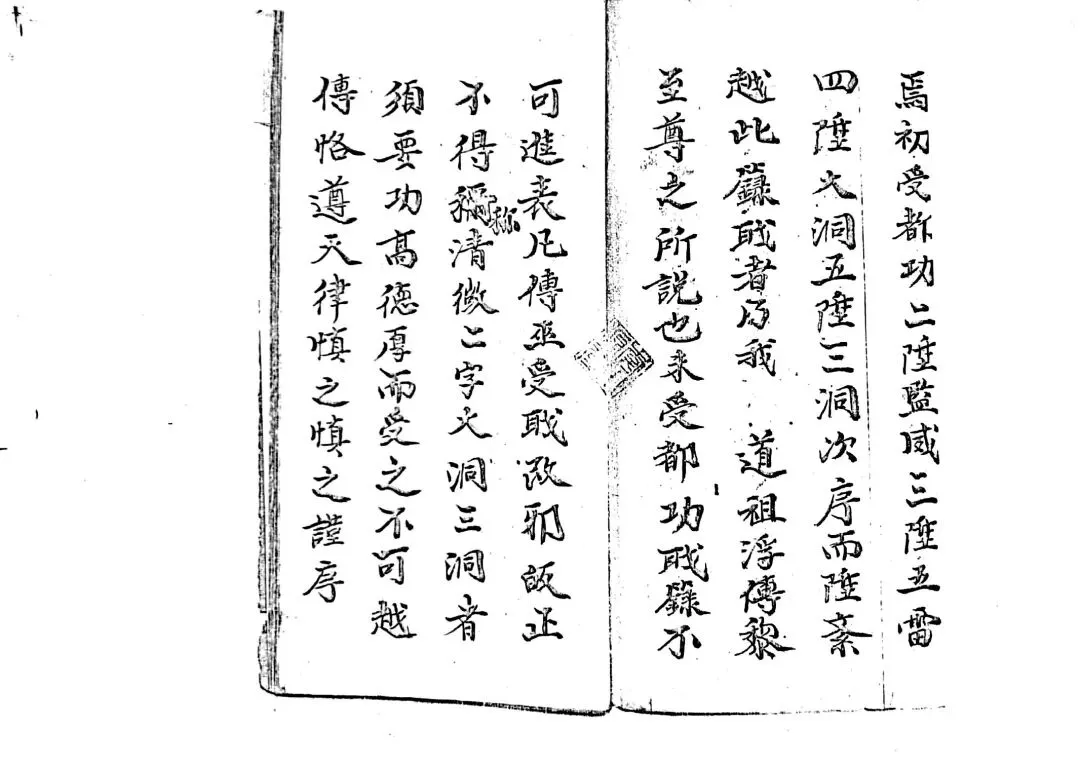 焉初受都功二陞監威三陞五雷
四陞火洞五陞三洞次序而陞紊
越此籙職者乃我 道祖浮傳黎
至尊之所説也未受都功職籙不
可進表凡傳巫受職改邪皈正
不得稱称清微二字火洞三洞者
須要功高德厚而受之不可越
傳恪遵天律慎之慎之謹序